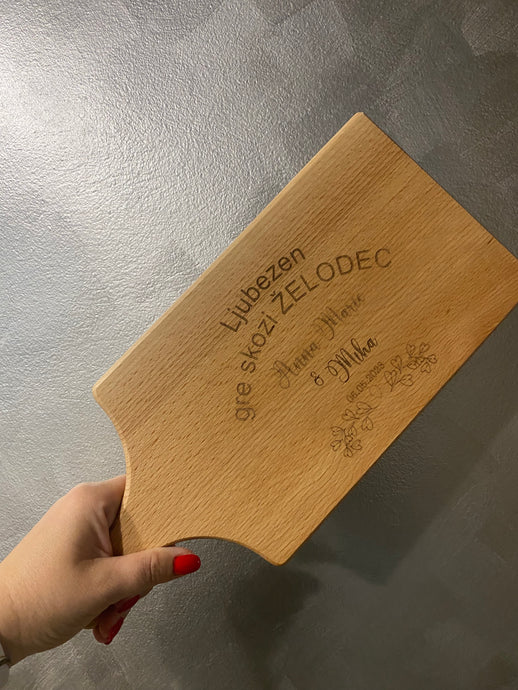 Ljubezen
gre skozi ŽELODEC
Anna Marie
& Miha